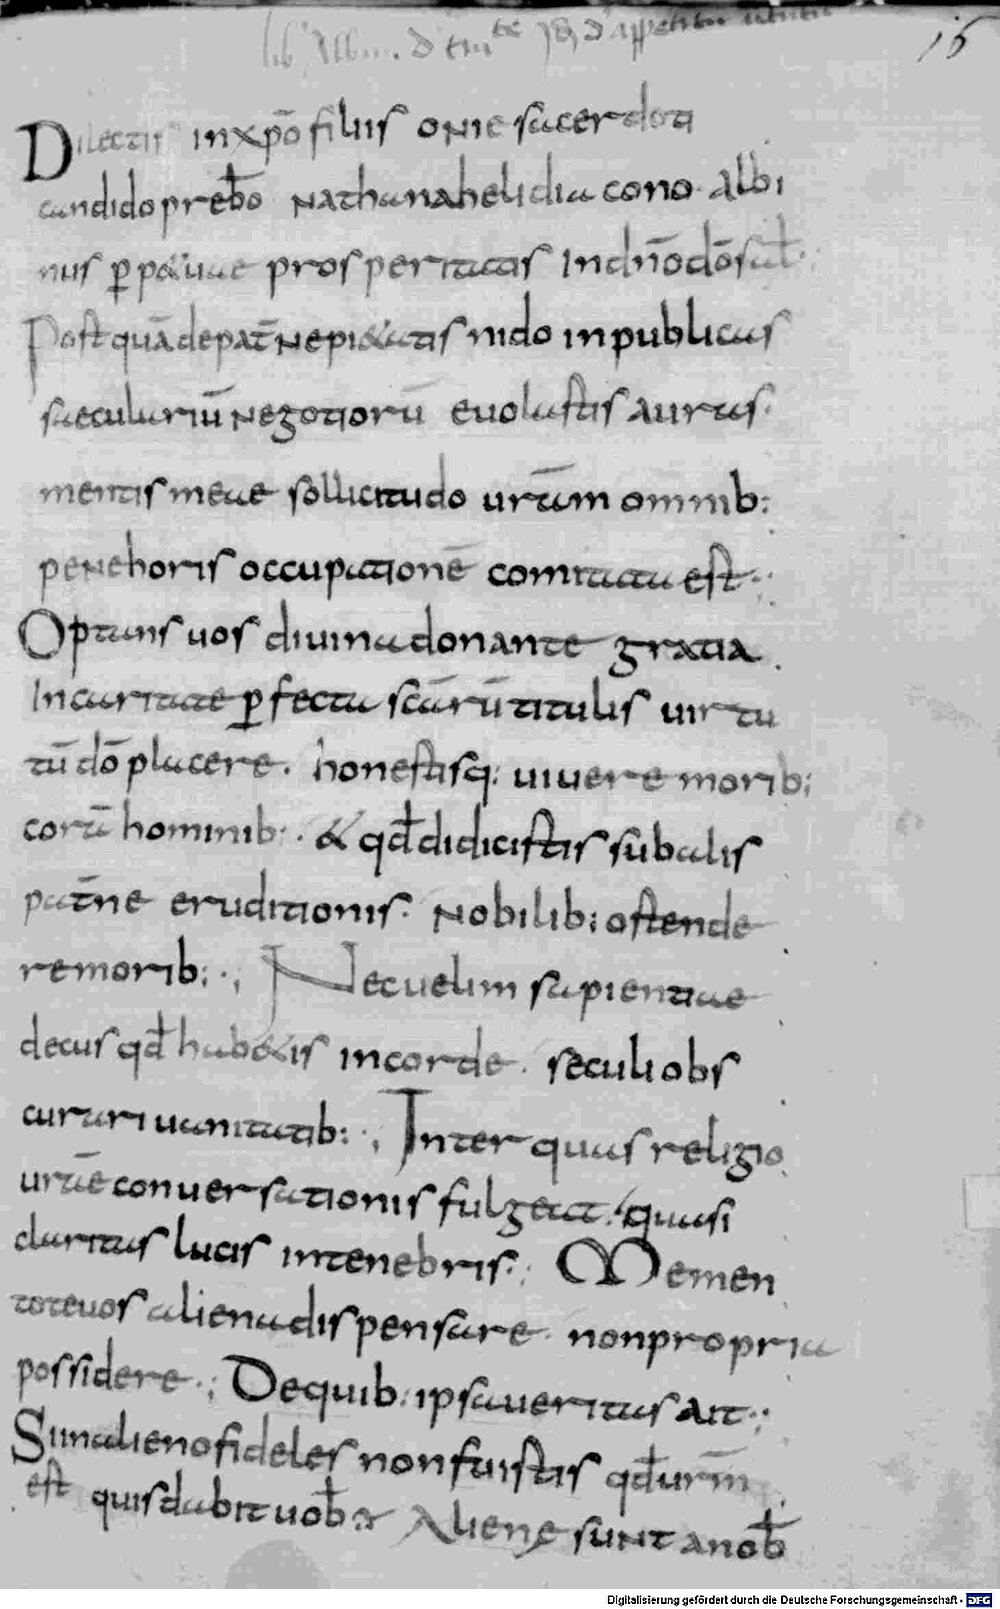 16
Dilectis inxpō filiis onie sacerdoti
candido preb̄o nathanaheli diacono · albi
nus p̱ p&uae prosperitatis indn̄o dō sal̄ ·;
Post quā de pat̄ne pi&atis nido in publicas
saeculariū negotiorū evolastis auras ·
mentis meae sollicitudo vr̄am omnib:
pene horis occupationē comitata est ·;
Optans vos divina donante gratia .
In caritate p̱fecta sc̄arū titulis virtu
tū dō placere . honestisq: vivere morib;
corā hominib: · & qd̄ didicistis sub alis
pat̄ne eruditionis · Nobilib: ostende
re morib; ·; Nec velim sapientiae
decus qd̄ hab&is in corde . seculi obs
curari vanitatib: ·; Inter quas religio
vr̄ae conversationis fulgeat . quasi
claritas lucis in tenebris ·; Memen
tote vos aliena dispensare · non propria
possidere ·; De quib: ipsa veritas ait ·;
Si in alieno fideles non fuistis qd̄ vr̄m
est quis dabit vob̄ Alienę sunt a nob̄
Digitalisierung gefördert durch die Deutsche Forschungsgemeinschaft - DFG